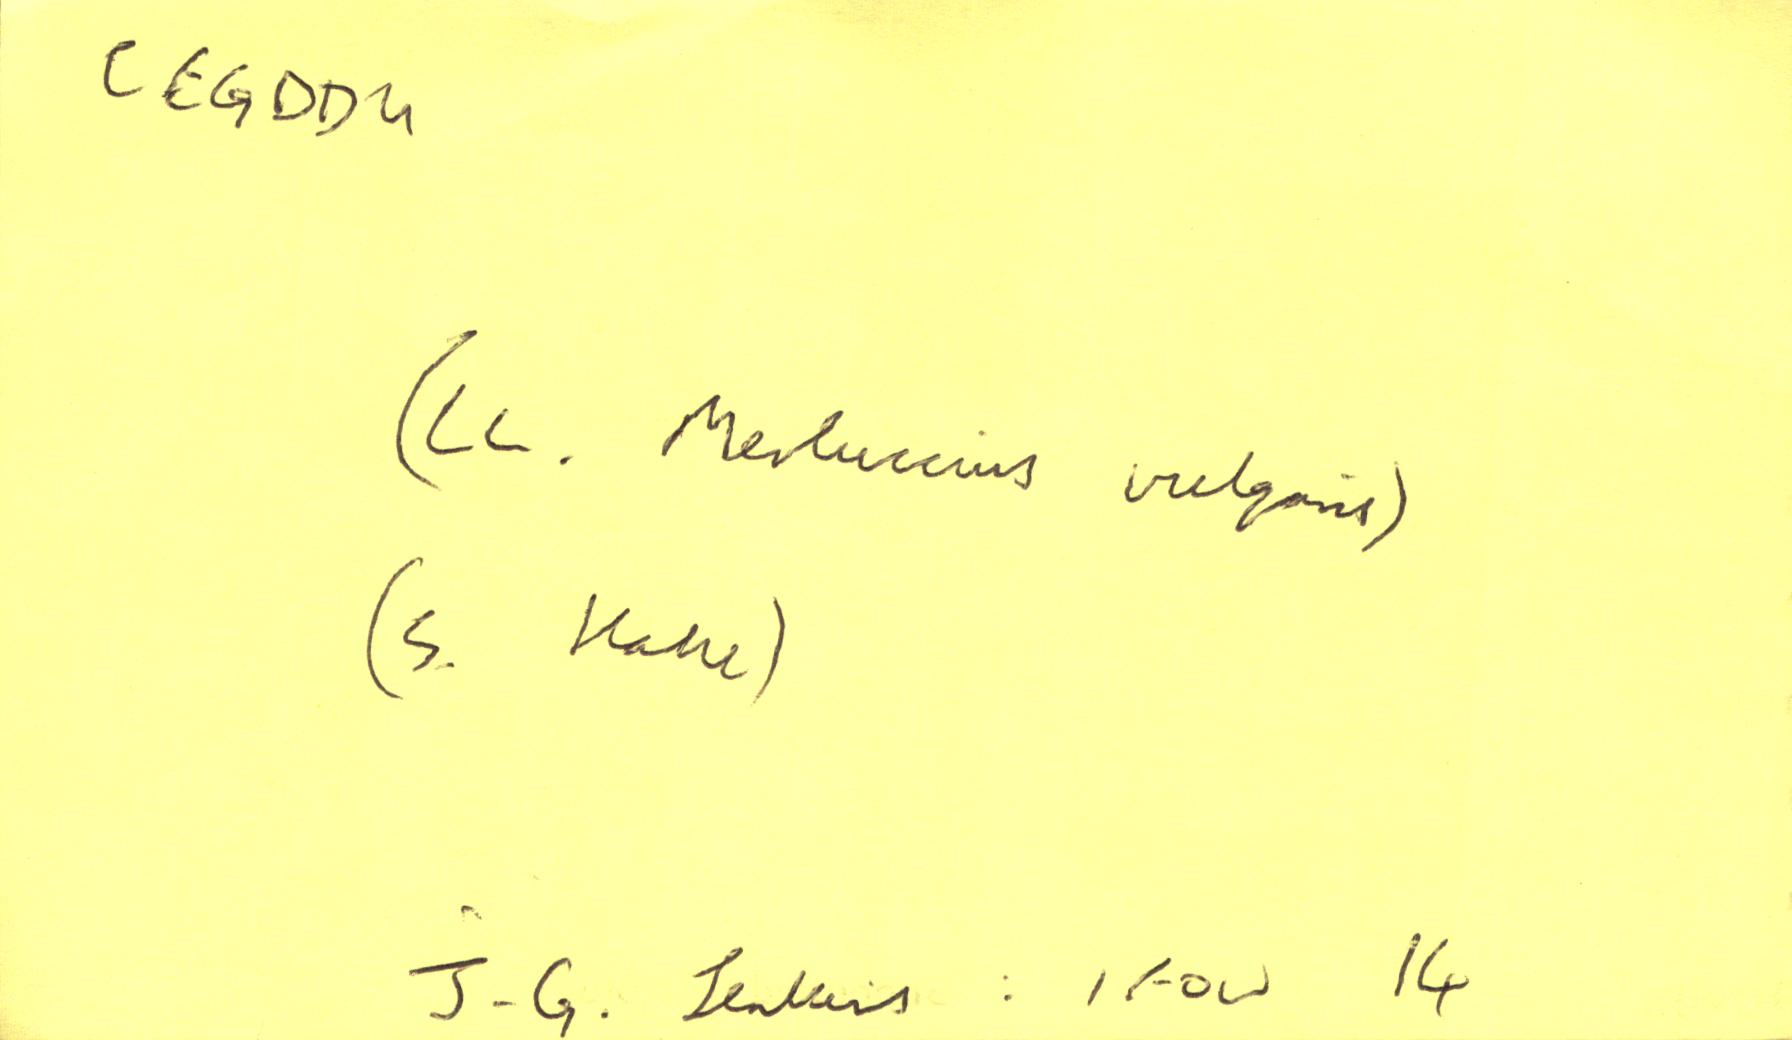 CEGDDU
(LL. Merluccius vulgaris)
(S. Hake)
J.G. Jenkins : IFOW 14